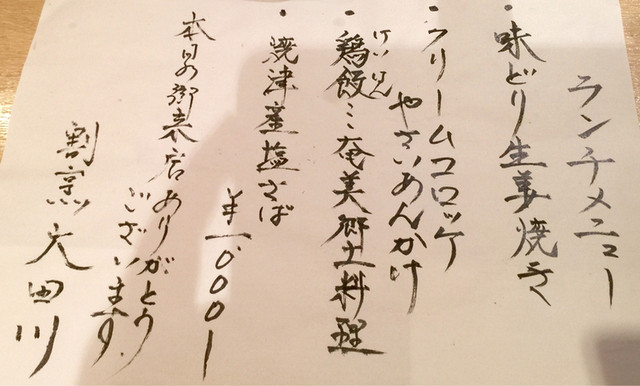 ランチメニュー
・味どり生姜焼き
・クリームコロッケ
やさいあんかけ
けいはん
・鶏飯ミ奄美郷土料理
・焼津産塩さば
¥1,000ー
本日の御来店ありがとう
ございます。
割烹 大田川